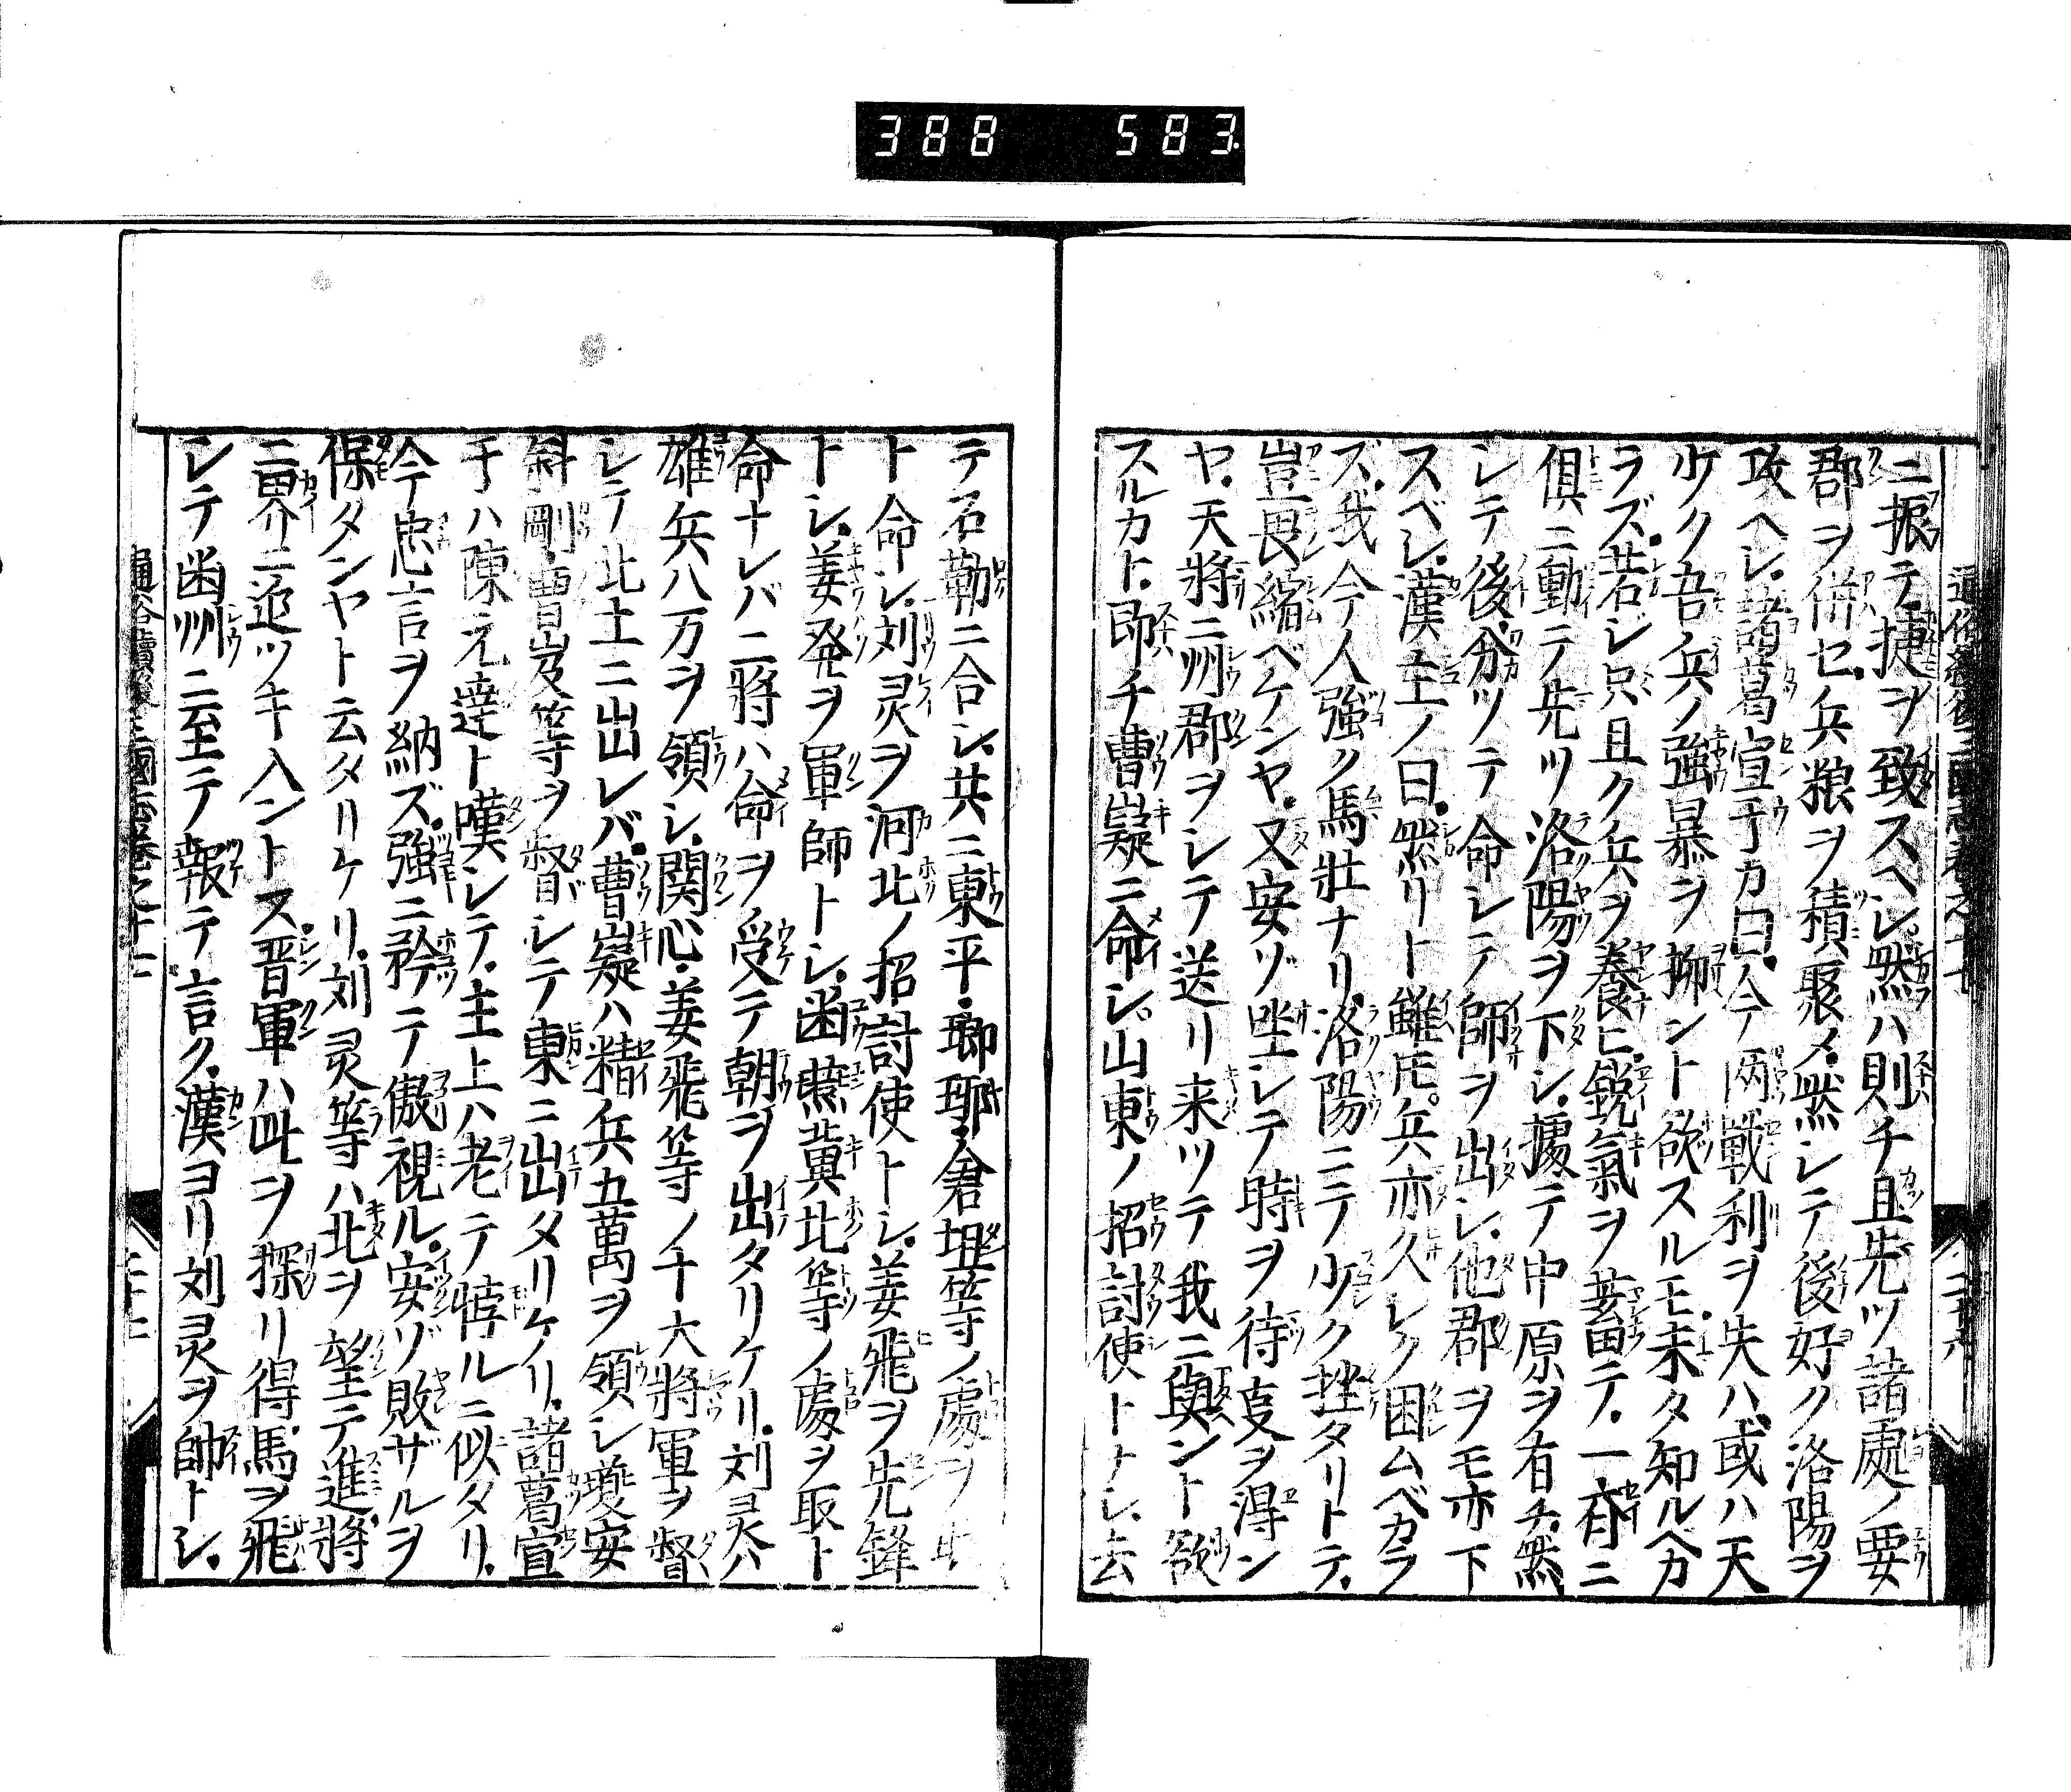 388 583
ニ振テ捷ヲ致スヘシ。然ハ則チ且先ツ諸處ノ要
郡ヲ併セ兵粮ヲ積聚メ。然シテ後好ク洛陽ヲ
攻ヘシ。諸葛宣于カ曰。今両戦利ヲ失ハ。或ハ天
少ク吾兵ノ強暴ヲ抑ント欲スルモ未タ知ルヘカ
ラズ。若シ只且ク兵ヲ養ヒ。鋭氣ヲ蓄テ。一齊ニ
俱ニ動テ先ツ洛陽ヲ下シ。據テ中原ヲ有チ。然
シテ後分ツテ命シテ師ヲ出シ。他郡ヲモ亦下
スベシ。漢主ノ曰。然リト雖モ。兵亦久シク困ムベカラ
ズ。我今人強ク馬壮ナリ。洛陽ニテ少ク挫タリトテ。
豈畏縮ベケンヤ。又安ゾ坐シテ時ヲ待吏ヲ得ン
ヤ。天將ニ州郡ヲシテ送リ来ツテ我ニ與ント欲
スルカト。即チ曹嶷ニ命シ。山東ノ招討使トナシ。去
テ石勒ニ合シ。共ニ東平。瑯琊。倉垣等ノ處ヲ
ト命シ。刘灵ヲ河北ノ招討使トシ。姜飛ヲ先鋒
トシ。姜発ヲ軍師トシ。幽燕冀北等ノ處ヲ取ト
命ナレバ二將ハ命ヲ受テ朝ヲ出タリケリ。刘灵ハ
雄兵八万ヲ領シ。関心。姜飛等ノ十六將軍ヲ督
シテ北土ニ出レバ。曹嶷ハ精兵五萬ヲ領シ夔安
剛曹嶷等ヲ督シテ東ニ出タリケリ。諸葛宣
于ハ陳元達ト嘆シテ。主上ハ老テ悖ルニ似タリ。
今忠言ヲ納ズ。強ニ矜テ傲視ル。安ゾ敗ザルヲ
保タンヤト云タリケリ。刘灵等ハ北ヲ望テ進。將
ニ界ニ近ツキ入ントス晋軍ハ此ヲ探リ得。馬ヲ飛
シテ幽州ニ至テ報テ言ク。漢ヨリ刘灵ヲ帥トシ。